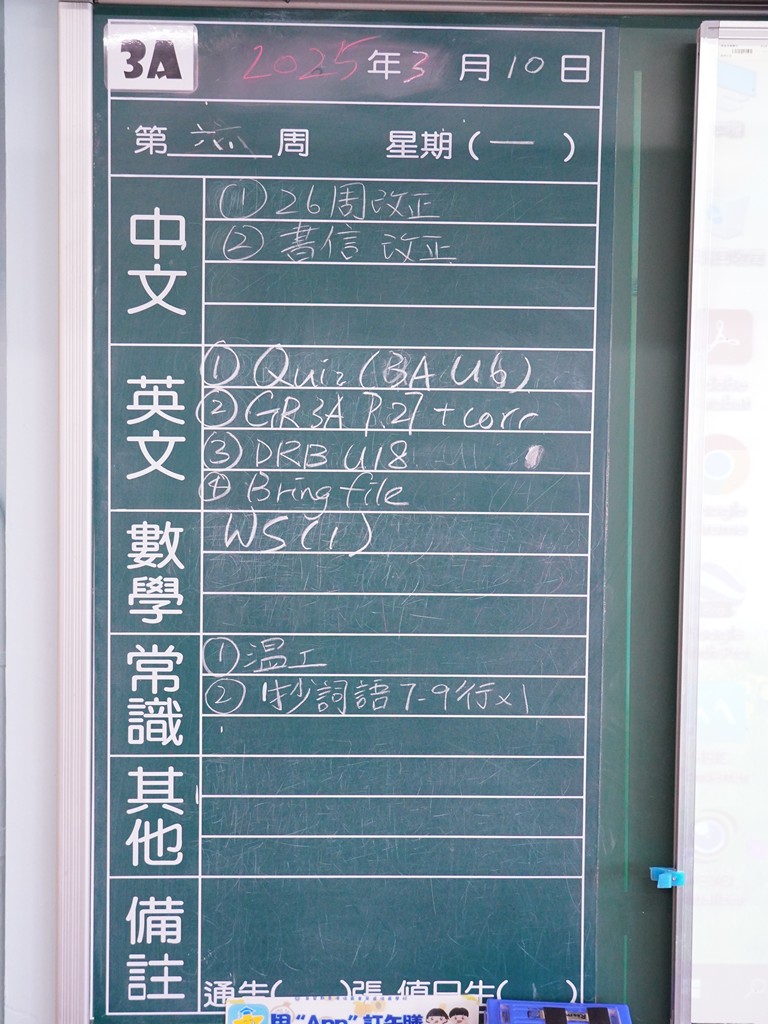 3A 2025年3月10日
第六周 星期(一)
中文
①26周改正
②書信 改正
英文
①Quiz (3A U6)
②GR3A P.27 + corr
③DRB U18
④Bring file
數學
WS(1)
常識
①溫工
②抄詞語7-9行×1
其他
備註
通告( )張 值日生( )
用“App”訂午膳